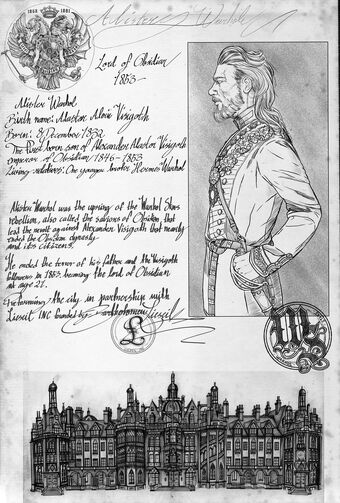 Alister Warhol
1868 1881
Lord of Obsidian
1853-
Alister Warhol
Birth name: Alastor Alvie Visigoth
Born: 8/December/1832
The First born son of Alexander Alastor Visigoth
emperor of Obsidian/1846-1853
Living relatives: One younger brother Hermes Warhol
Alister Warhol was the uprising of the Warhol Stars
rebellion, also called the saviors of Obsidian that
lead the revolt against Alexander Visigoth that nearly
ended the Obsidian dynasty
and its citizens.
He ended the terror of his father and the Visigoth
followers in 1853 becoming the lord of Obsidian
at age 21.
Reforming the city in partnership with
INC founded by Bartholomew